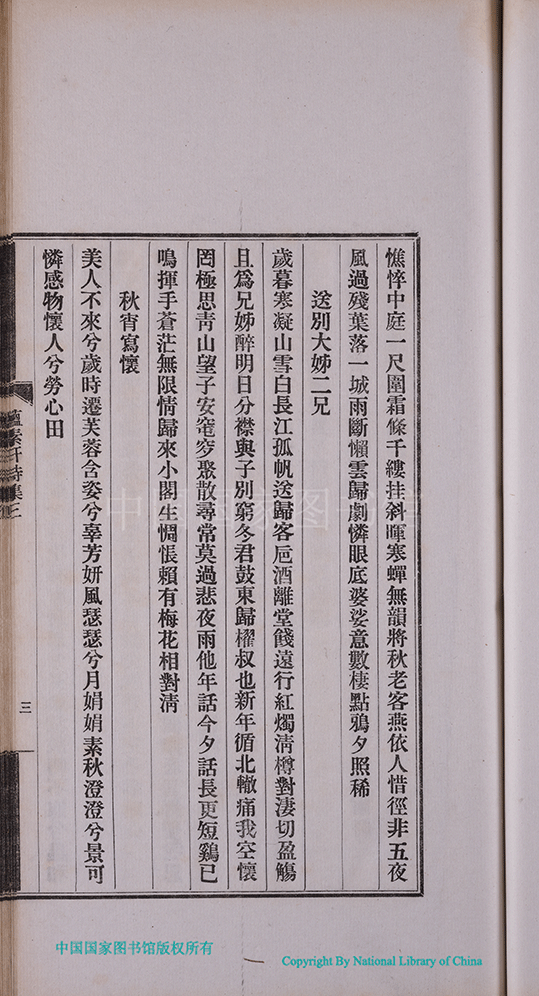 憔悴中庭一尺圍霜條千縷挂斜暉寒蟬無韻將秋老客燕依人惜徑非五夜
風過殘葉落一城雨斷懶雲歸劇憐眼底婆娑意數棲點鴉夕照稀
送別大姊二兄
歲暮寒凝山雪白長江孤帆送歸客卮酒離堂餞遠行紅燭淸樽對淒切盈觴
且爲兄姊醉明日分襟與子別窮冬君鼓東歸櫂叔也新年循北轍痛我空懷
罔極思靑山望子安窀穸聚散尋常莫過悲夜雨他年話今夕話長更短鷄已
鳴揮手蒼茫無限情歸來小閣生惆悵賴有梅花相對淸
秋宵寫懷
美人不來兮歲時遷芙蓉含姿兮辜芳妍風瑟瑟兮月娟娟素秋澄澄兮景可
憐感物懷人兮勞心田
蘊素軒詩集三
三
中国国家图书馆
中国国家图书馆版权所有
Copyright By National Library of China